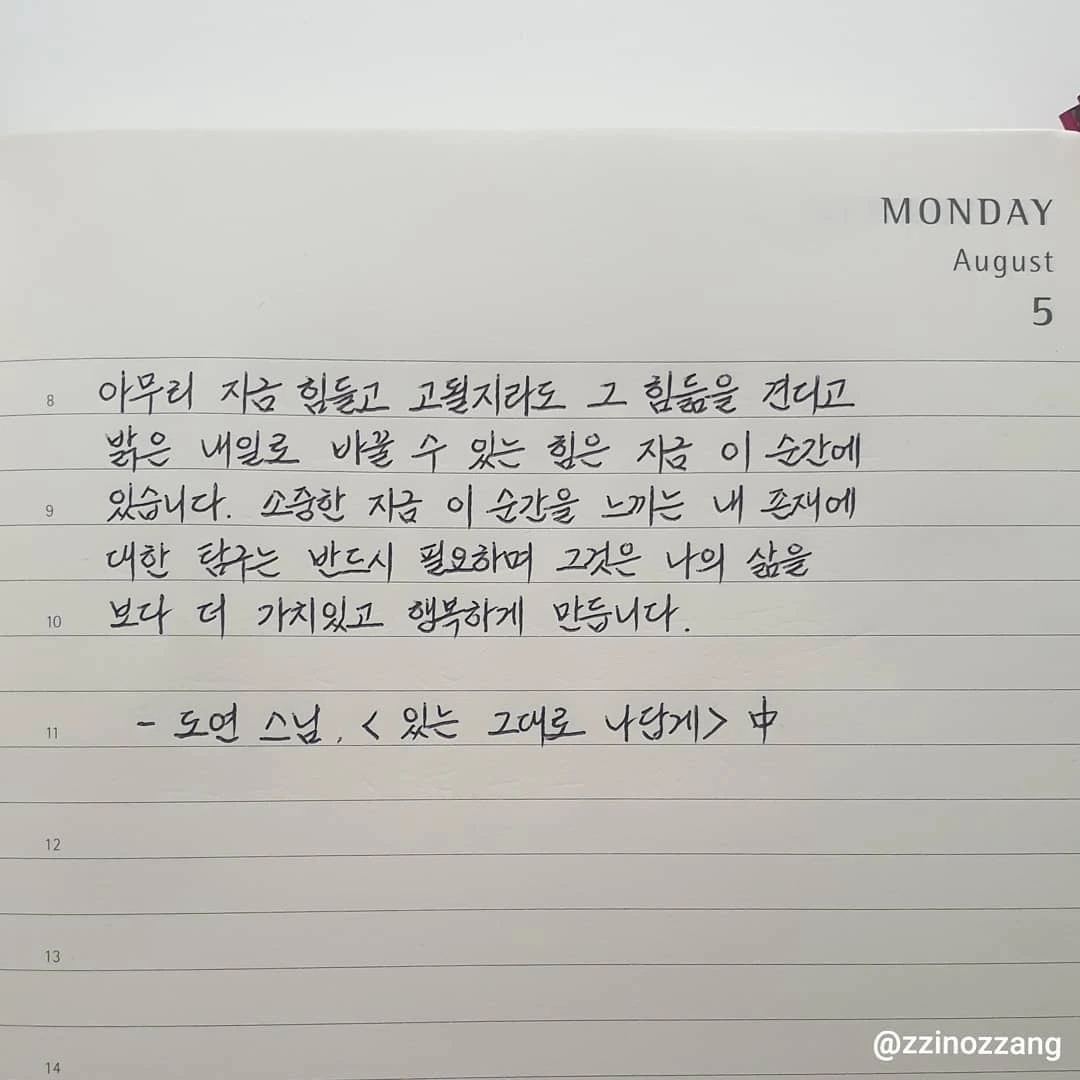 MONDAY
August
5
8 아무리 지금 힘들고 고될지라도 그 힘듦을 견디고
밝은 내일로 바꿀 수 있는 힘은 지금 이 순간에
9 있습니다. 소중한 지금 이 순간을 느끼는 내 존재에
대한 탐구는 반드시 필요하며 그것은 나의 삶을
10 보다 더 가치있고 행복하게 만듭니다.
11 - 도연 스님, <있는 그대로 나답게> 中
12
13
14
@zzinozzang